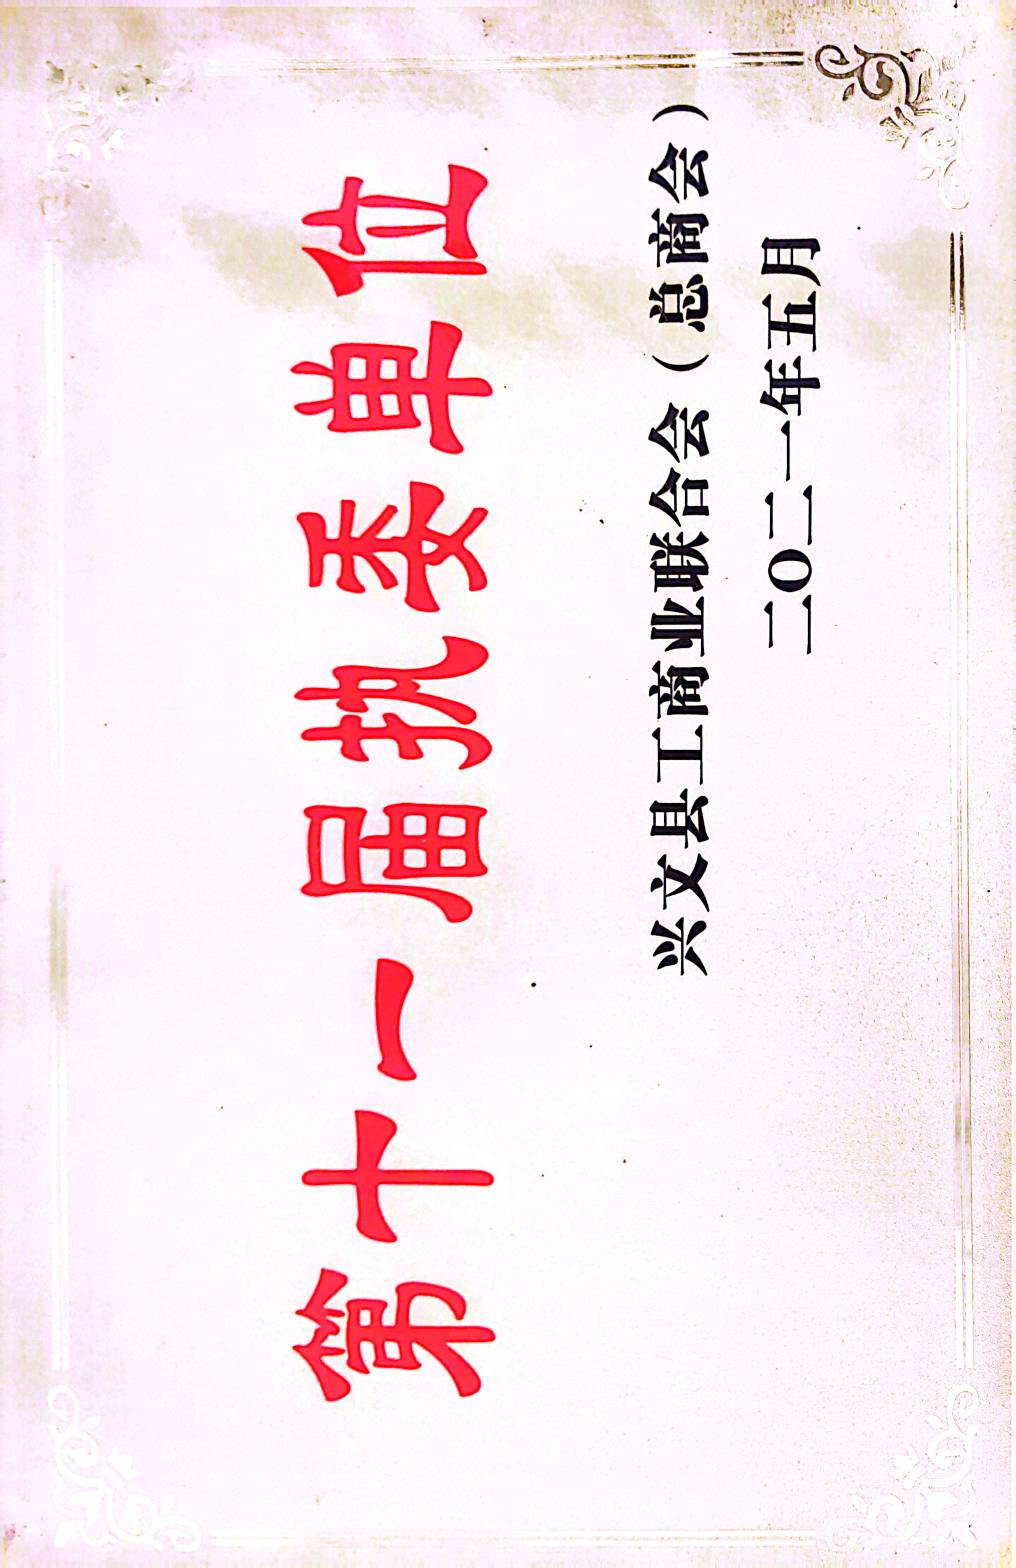 第十一届执委单位
兴文县工商业联合会（总商会）
二〇二一年五月